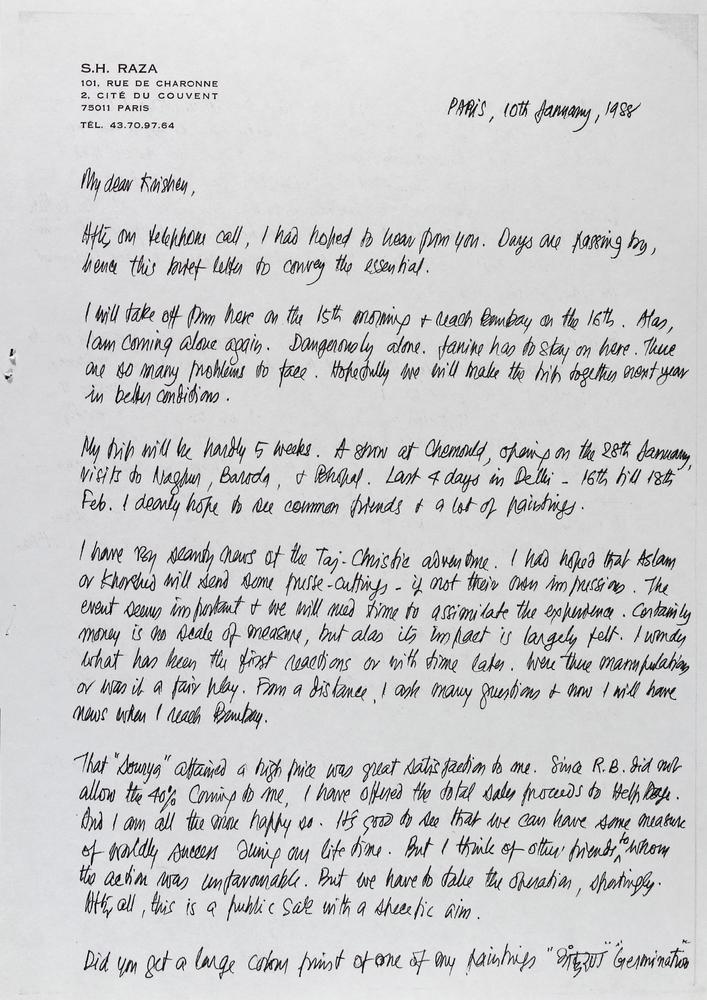 S.H. RAZA
101, RUE DE CHARONNE
2, CITÉ DU COUVENT
75011 PARIS
TÉL. 43.70.97.64
PARIS, 10th January, 1988
My dear Krishen,
After our telephone call, I had hoped to hear from you. Days are passing by,
hence this brief letter to convey the essential.
I will take off from here on the 15th morning + reach Bombay on the 16th. Alas,
I am coming alone again. Dangerously alone. Janine has to stay on here. There
are so many problems to face. Hopefully we will make the trip together next year
in better conditions.
My trip will be hardly 5 weeks. A show at Chemould, opening on the 28th January,
visits to Nagpur, Baroda, + Bhopal. Last 4 days in Delhi - 16th till 18th
Feb. I dearly hope to see common friends + a lot of paintings.
I have very scanty news of the Taj-Christie adventure. I had hoped that Aslam
or Khorshed will send some presse-cuttings - if not their own impressions. The
event seems important + we will need time to assimilate the experience. Certainly
money is no scale of measure, but alas its impact is largely felt. I wonder
what has been the first reactions or with time later. Were there manipulations
or was it a fair play. From a distance, I ask many questions + now I will have
news when I reach Bombay.
That "Sourya" attained a high price was great satisfaction to me. Since R.B. did not
allow the 40% coming to me, I have offered the total sales proceeds to Help Age.
And I am all the more happy so. It's good to see that we can have some measure
of worldly success during our life time. But I think of other friends to whom
the action was unfavourable. But we have to take the operation, sportingly.
After all, this is a public sale with a specific aim.
Did you get a large colour print of one of my paintings "Germination"